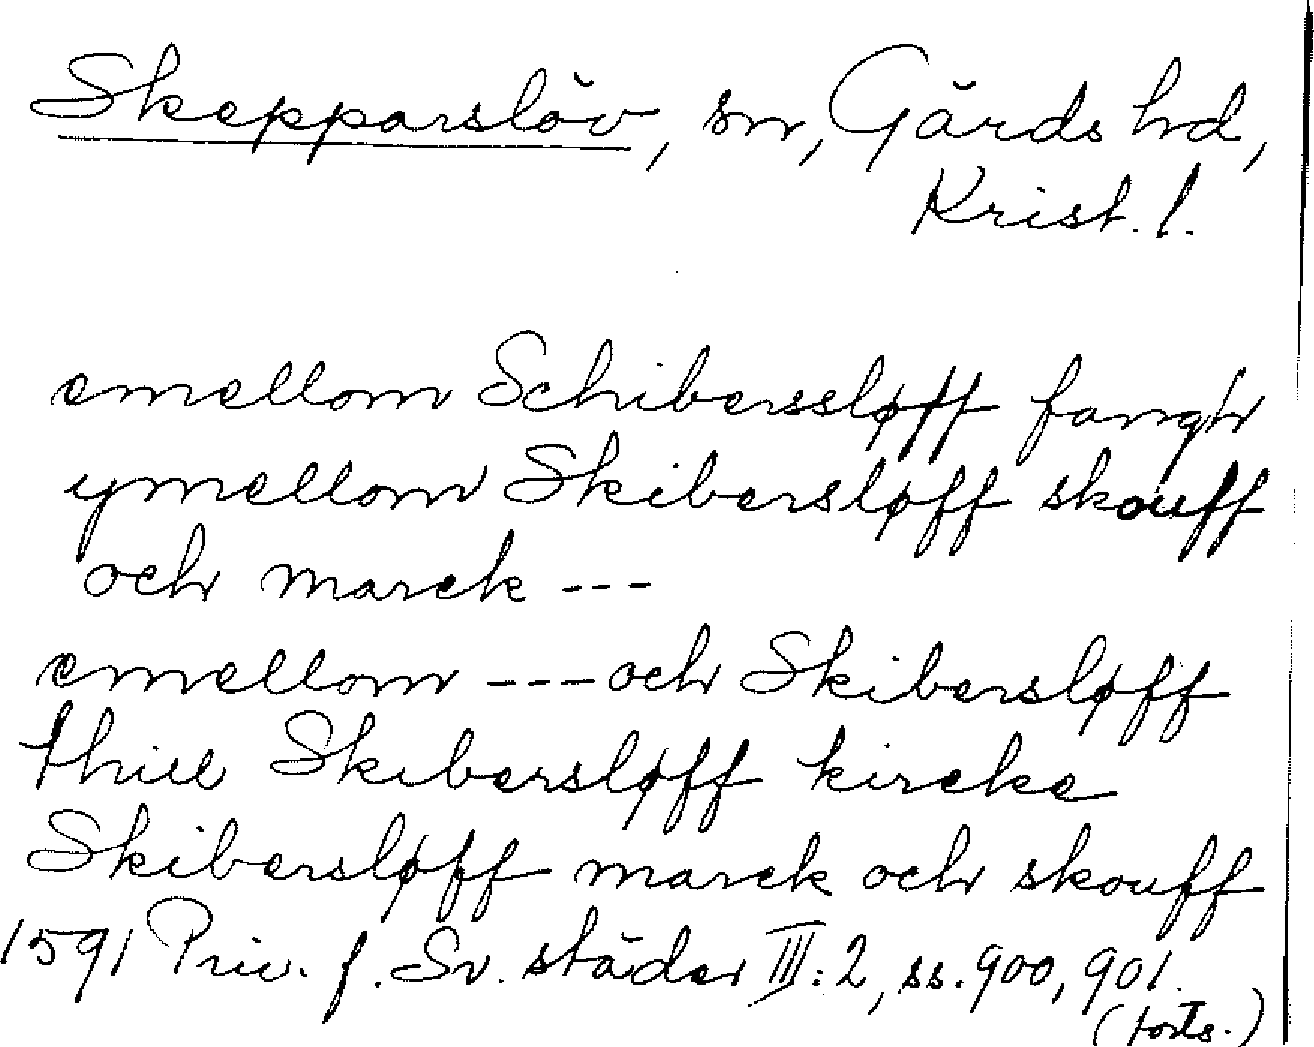 Skepparslöv, sn, Gärds hd,
Krist. l.
emellom Schiberssløff fangh
ymellom Skibersløff skouff
och marck ---
emellom --- och Skibersløff
thill Skibersløff kircke
Skibersløff marck och skouff
1591 Priv. f. Sv. städer III:2, ss. 900, 901.
(forts.)